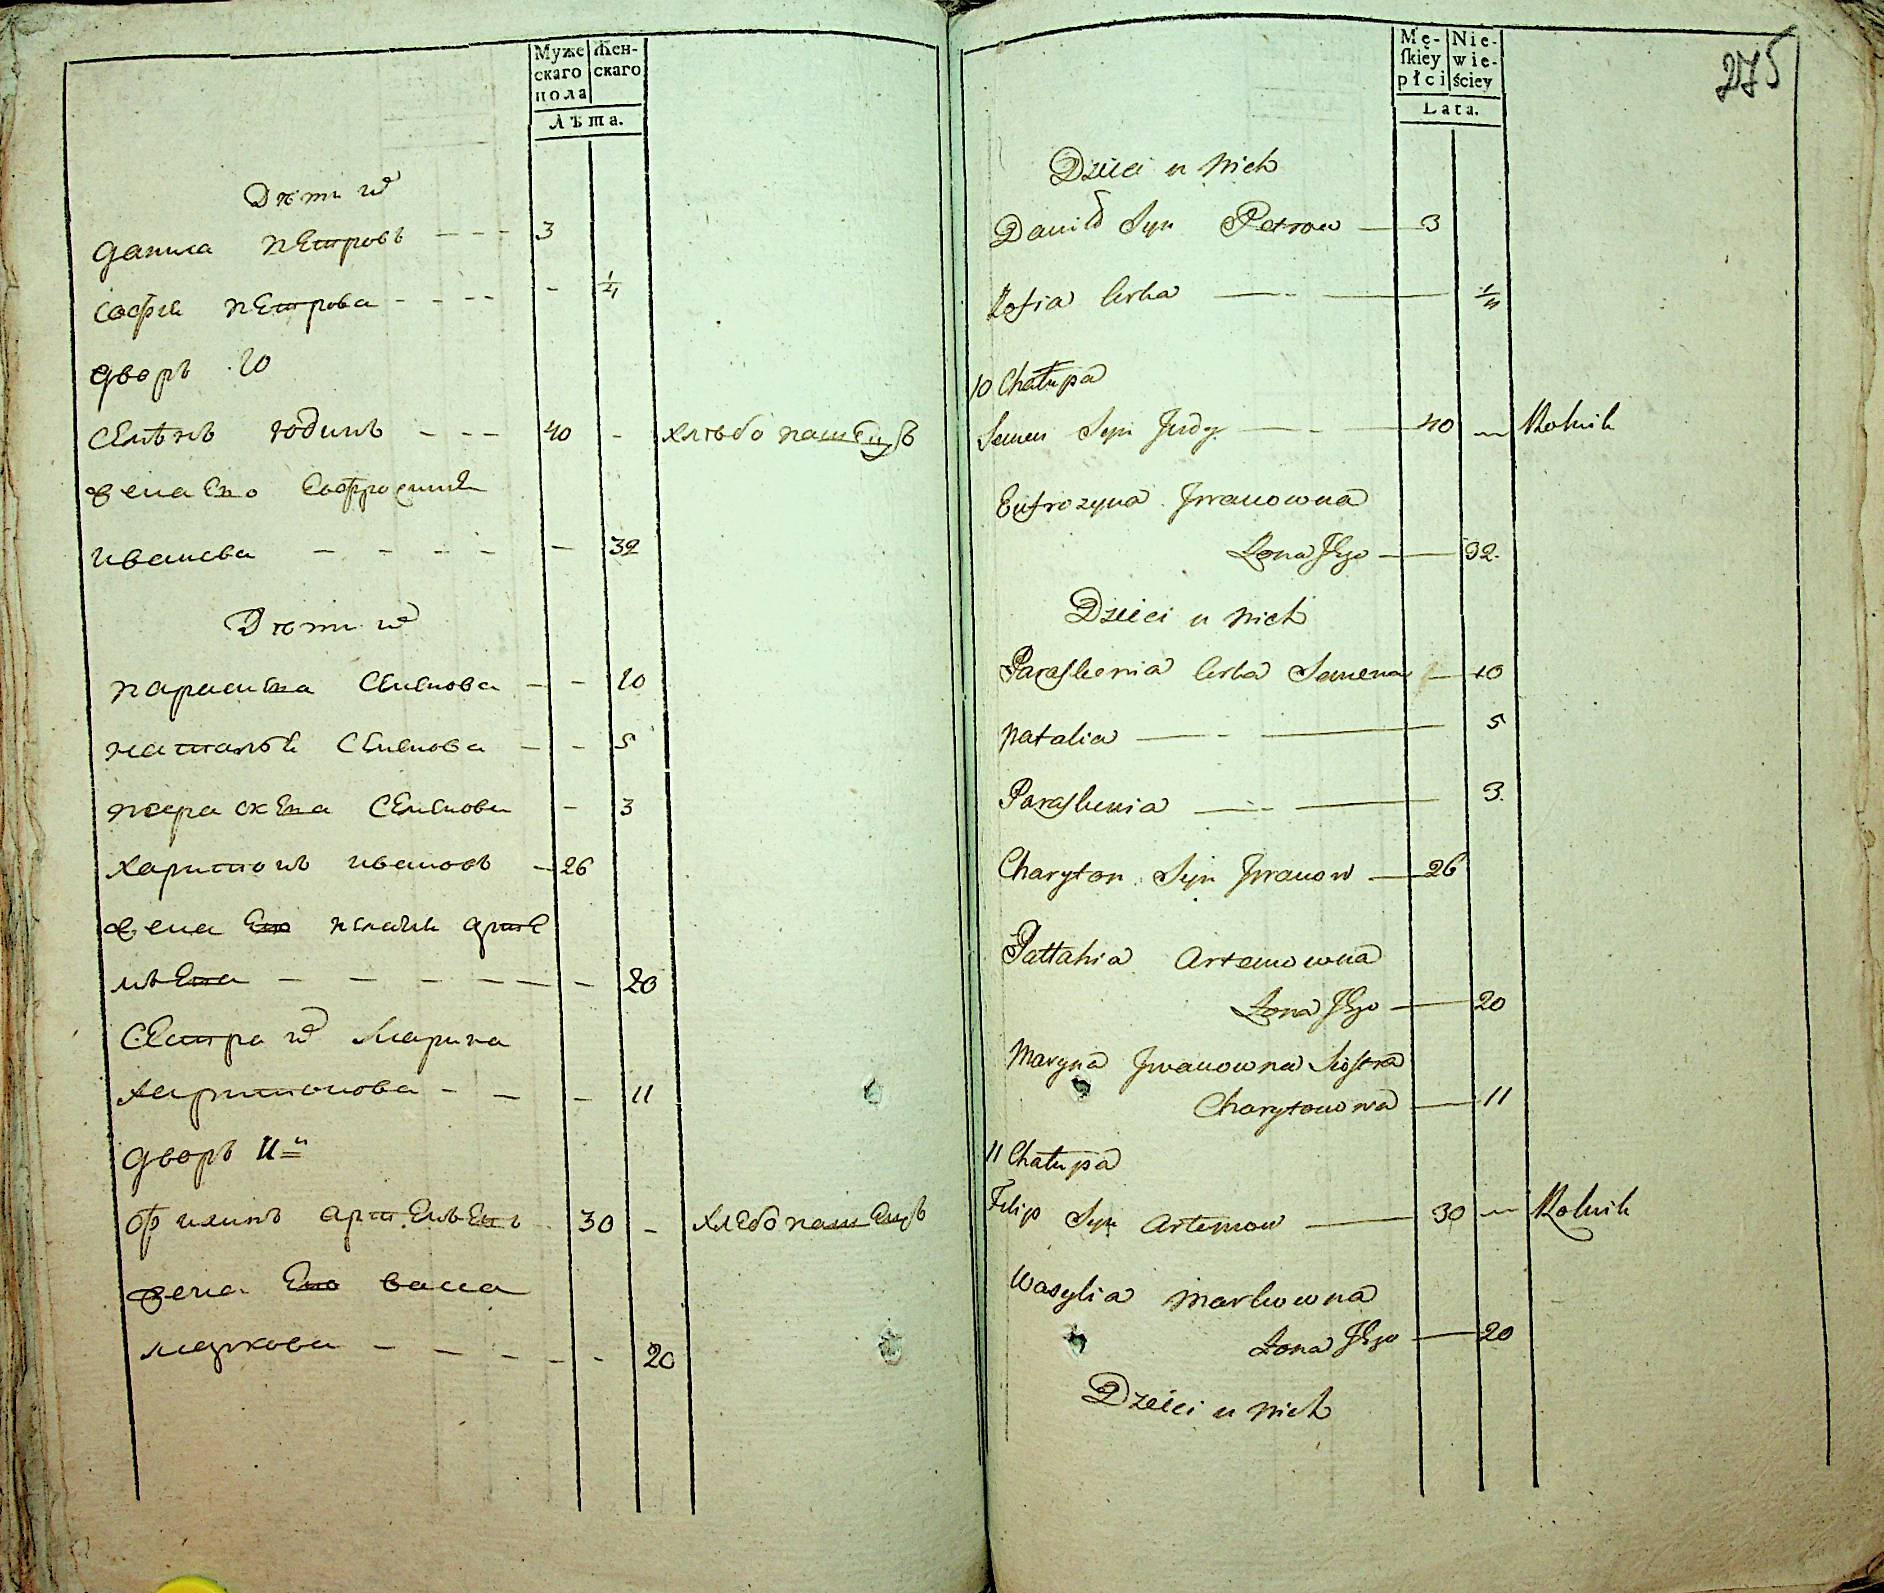 Муже
скаго
пола
Жен-
скаго
Лѣта.
Дѣти их
данила петровъ - - - 3
софия петрова - - - - - 1/4
дворъ 10
семенъ юдинъ - - - 40 - хлѣбопашецъ
жена его ефросиния
иванова - - - - - 32
Дѣти их
параския семенова - - 10
наталья семенова - - 5
параскева семенова - 3
харитонъ ивановъ - 26
жена его пелагия арте
мьева - - - - - - 20
сестра их марина
харитонова - - - 11
дворъ 11й
филипъ артемьевъ - 30 - хлебопашецъ
жена его васса
маркова - - - - - 20
Mę-
ſkiey
płci
Nie-
wie-
ściey
Lata.
275
Dzieci u Nich
Daniło Syn Petrow — 3
Zofia Corka — - — 1/4
10 Chałupa
Semen Syn Judy — - — 40 — Rolnik
Eufrozyna Jwanowna
Zona Jego — 32.
Dzieci u Nich
Paraskewia Corka Semena — 10
Natalia — - — 5
Paraskewia — - — 3.
Charyton Syn Jwanow — 26
Pallahia Artemowna
Zona Jego — 20
Maryna Jwanowna Siostra
Charytonowna — 11
11 Chałupa
Filip Syn Artemow — 30 — Rolnik
Wasylia Markowna
Zona Jego — 20
Dzieci u Nich